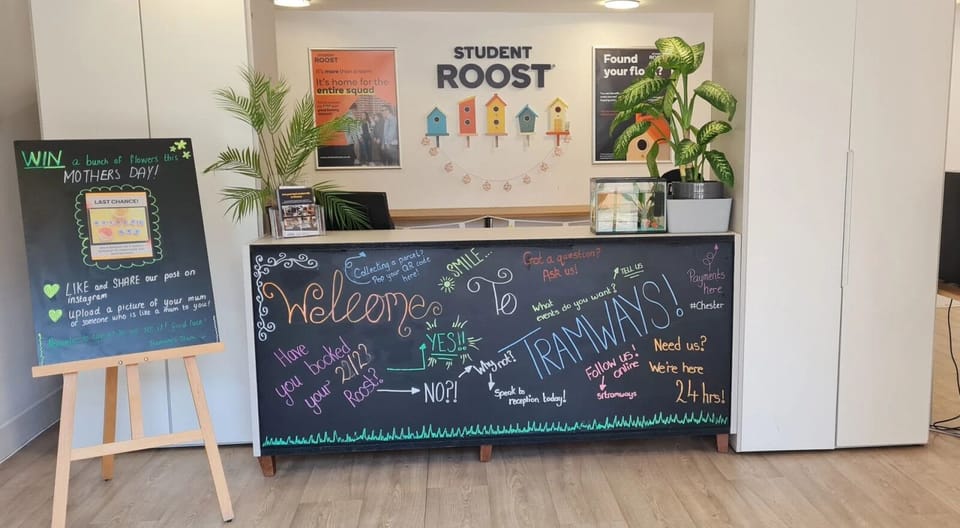 STUDENT
ROOST
ROOST
It's more than a room.
It's home for the
entire squad
Found
your flock?
WIN a bunch of flowers this
MOTHERS DAY!
LAST CHANCE!
LIKE and SHARE our post on
instagram
upload a picture of your mum
or someone who is like a mum to you!
Collecting a parcel?
Pop your QR code
here!
SMILE...
Got a question?
Ask us!
Payments
here
#Chester
Welcome
To
What
events do you want?
TELL US
TRAMWAYS!
Have
you booked
your 22/23
Roost?
YES!!
NO?!
Why not?
Speak to
reception today!
Follow us!
online
srtramways
Need us?
We're here
24 hrs!